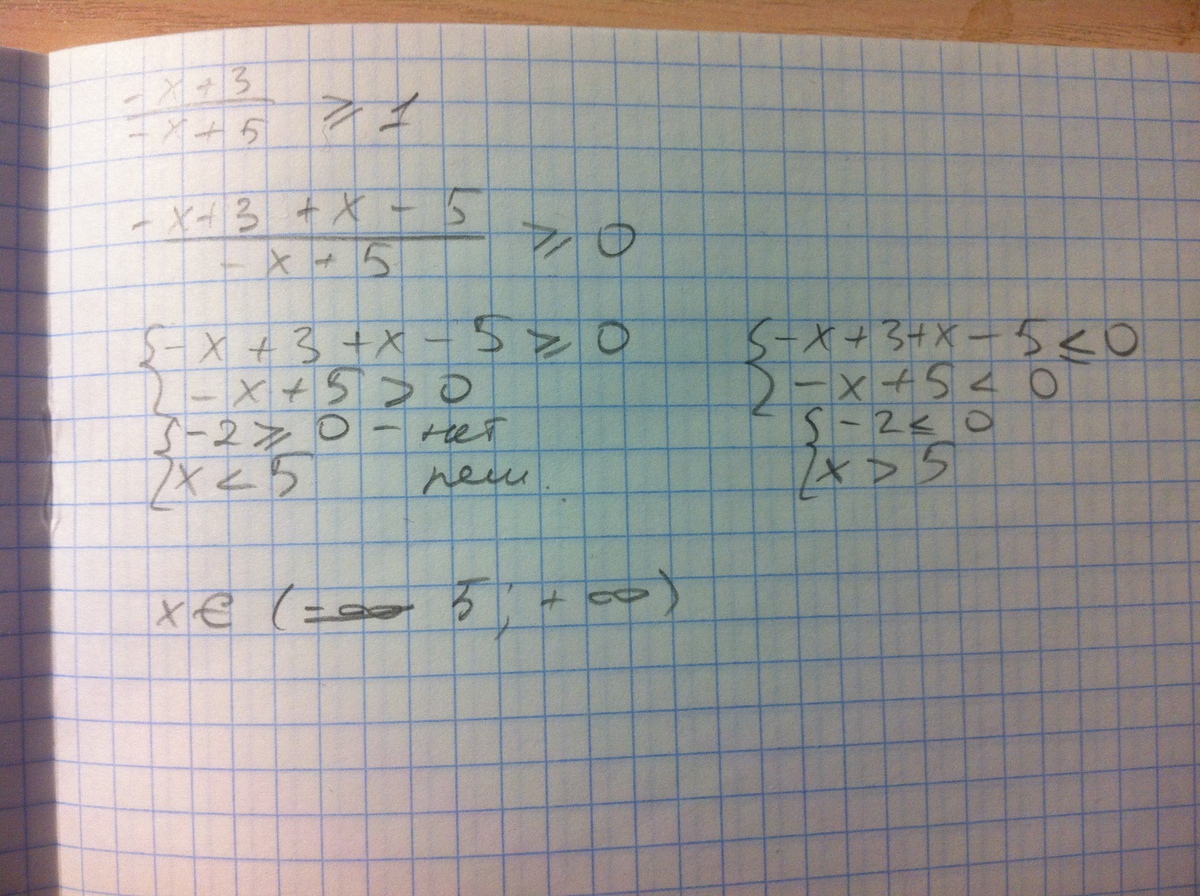 (-x+3)/(-x+5) ⩾ 1
(-x+3+x-5)/(-x+5) ⩾ 0
{-x+3+x-5⩾0
-x+5>0
{-2⩾0 - нет
x<5 реш.
{-x+3+x-5≤0
-x+5<0
{-2≤0
x>5
x∈(-∞ 5;+∞)